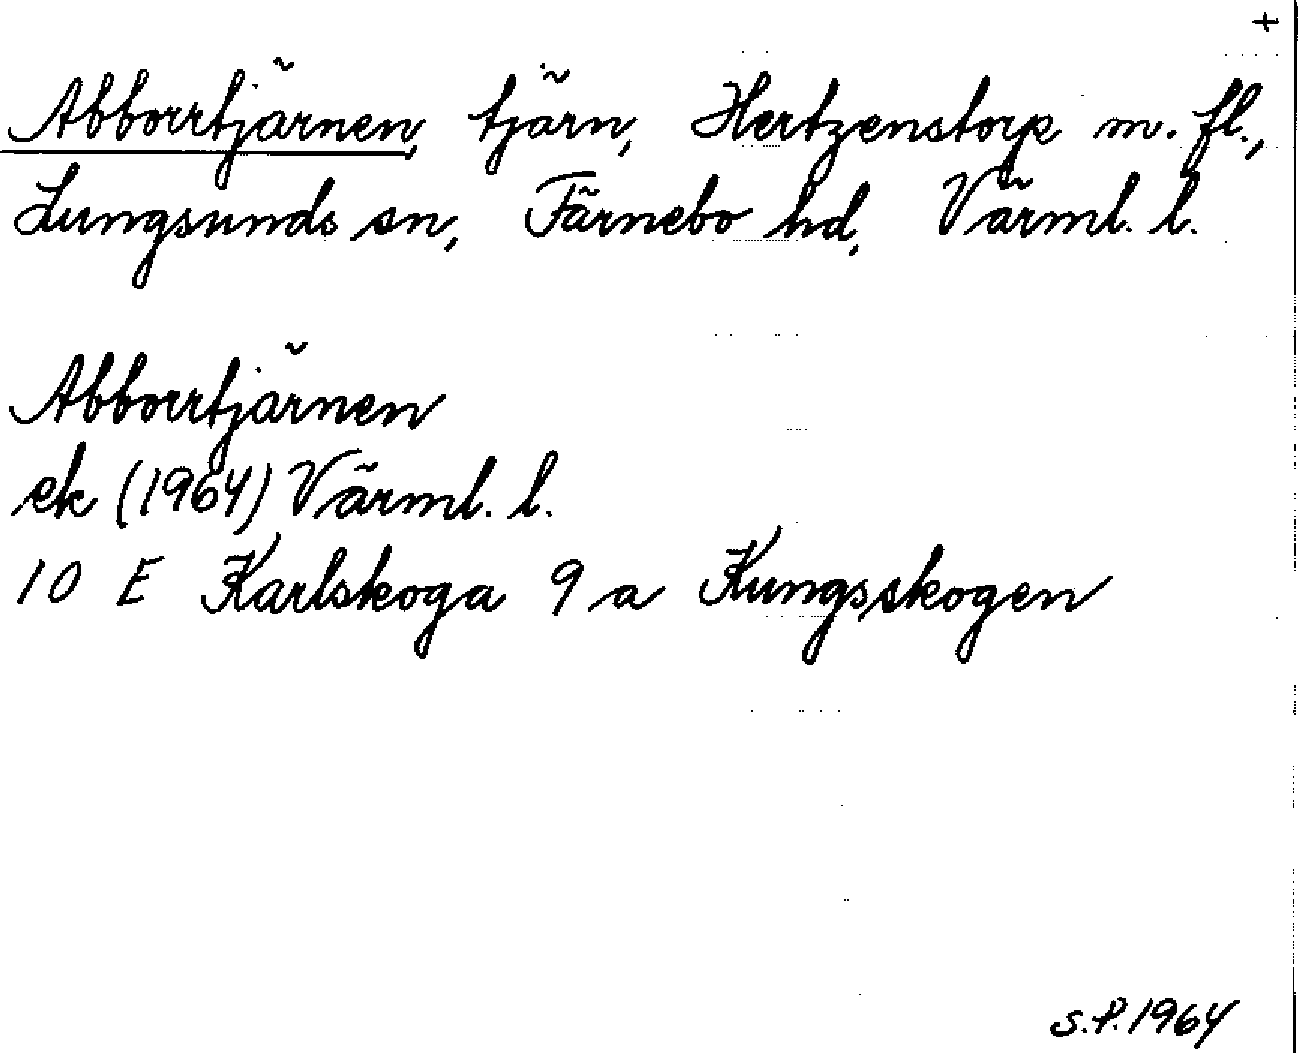 +
Abborrtjärnen, tjärn, Hertzenstorp m. fl.,
Lungsunds sn, Färnebo hd, Värml. l.
Abborrtjärnen
ek (1964) Värml. l.
10 E Karlskoga 9 a Kungsskogen
S.P. 1964